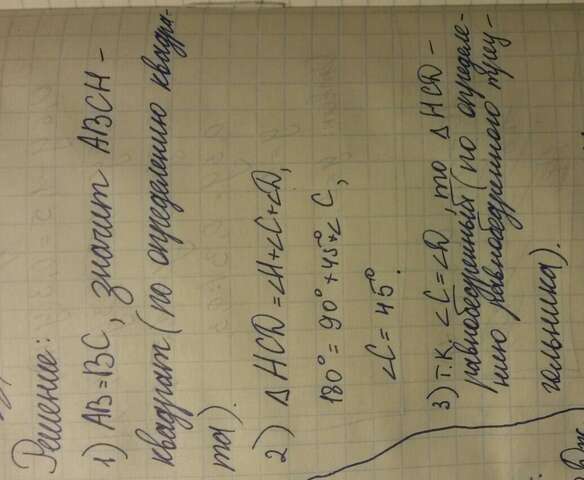 Решение:
1) AB=BC, значит ABCH –
квадрат (по определению квадра-
та).
2) Δ HCD = ∠H+∠C+∠D,
180° = 90° + 45° + ∠C,
∠C = 45°.
3) т.к. ∠C = ∠D, то Δ HCD –
равнобедренный (по определе-
нию равнобедренного треу-
гольника).